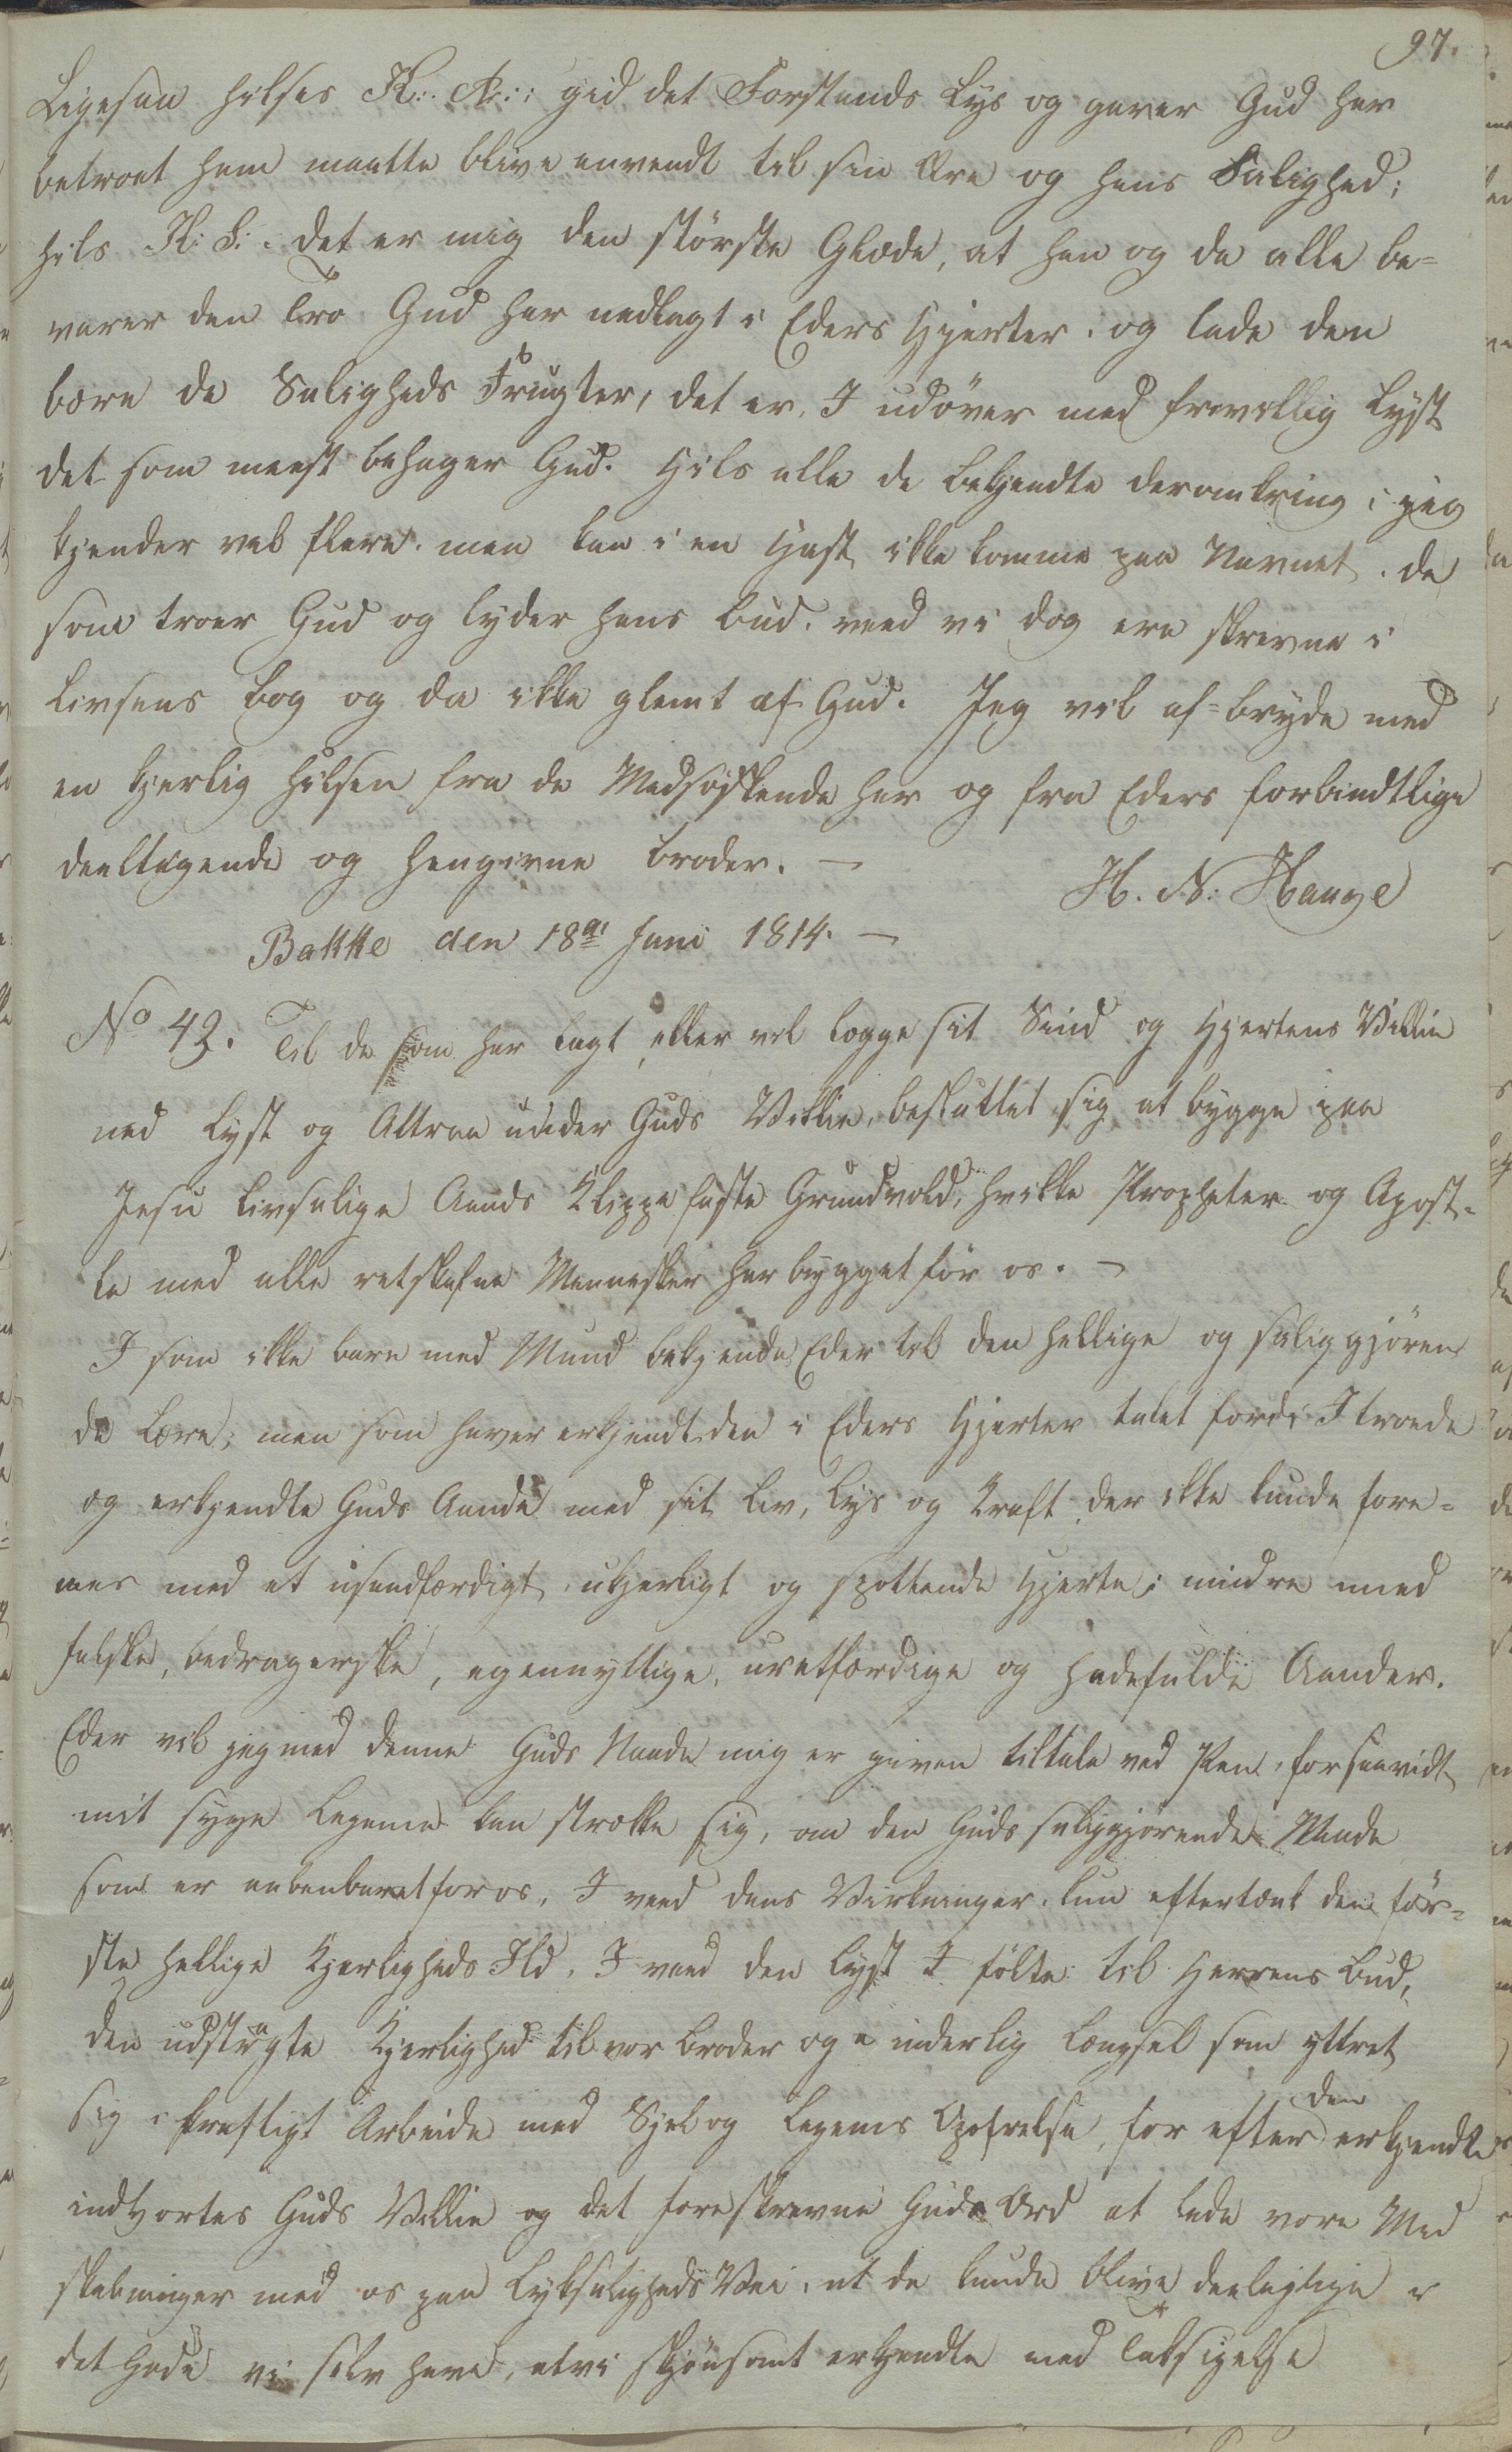 97.
Ligesaa hilses K: A:: gid det Forstands Lys og gaver Gud har
betroet ham maatte blive anvendt til sin Ære og hans Salighed;
hils K: S: . det er mig den störste Glæde, at han og de alle be=
varer den Tro Gud har nedlagt i Eders Hjerter: og lade den
bære de Saligheds Frugter, det er, I udöver med frievillig Lyst
det som meest behager Gud. Hils alle de bekjendte deromkring, jeg
kjender vel flere. men kan i en Hast ikke komme paa Navnet. de
som troer Gud og lyder hans bud. veed vi dog ere skrevne i
Livsens bog og da ikke glemt af Gud. Jeg vil af=bryde med
en kjerlig hilsen fra de Medsödskende her og fra Eders forbindtlige
deeltagende og hengivne broder. —
H. N: Hauge
Bakke den 18de Juni 1814. —
No 42. Til de som har lagt, eller vil lægge sit Sind og Hjertens Villie
med Lyst og Attraa under Guds Villie, besluttet sig at bygge paa
Jesu Livsalige Aands Klippe faste Grundvold, hvilke Propheter og Apost=
le med alle retskafne Mennesker har bygget för os. —
I som ikke bare med Mund bekjende Eder til den hellige og saliggjören
de Lære; men som haver erkjendt den i Eders Hjerter talet fordi I troede
og erkjendte Guds Aande med sit Liv, Lys og Kraft der ikke kunde fore=
nes med et usandfærdigt, ukjerligt og spottende Hjerte; mindre med
falske, bedragerske, egennyttige, uretfærdige og hadefulde Aander.
Eder vil jeg med denne Guds Naade mig er given tiltale ved Pen, forsaavidt
mit syge Legeme kan strække sig, om den Guds saliggjörende Naade
som er aabenbaret for os, I veed dens Virkninger. kun eftertænk den för=
ste hellige Kjerligheds Ild, I veed den Lyst I fölte til Herrens bud,
den udstragte Kjerlighed til vor broder og inderlig Længsel som yttret
sig i kraftigt Arbeide med Sjel og Legems Opofrelse, for efter den erkjendte
indvortes Guds Villie og det foreskrevne Guds Ord at lede vore Med
skabninger med os paa Lyksaligheds Vei, at de kunde blive deelagtige i
det Gode vi selv have, at vi skjönsomt erkjendte med Taksigelse